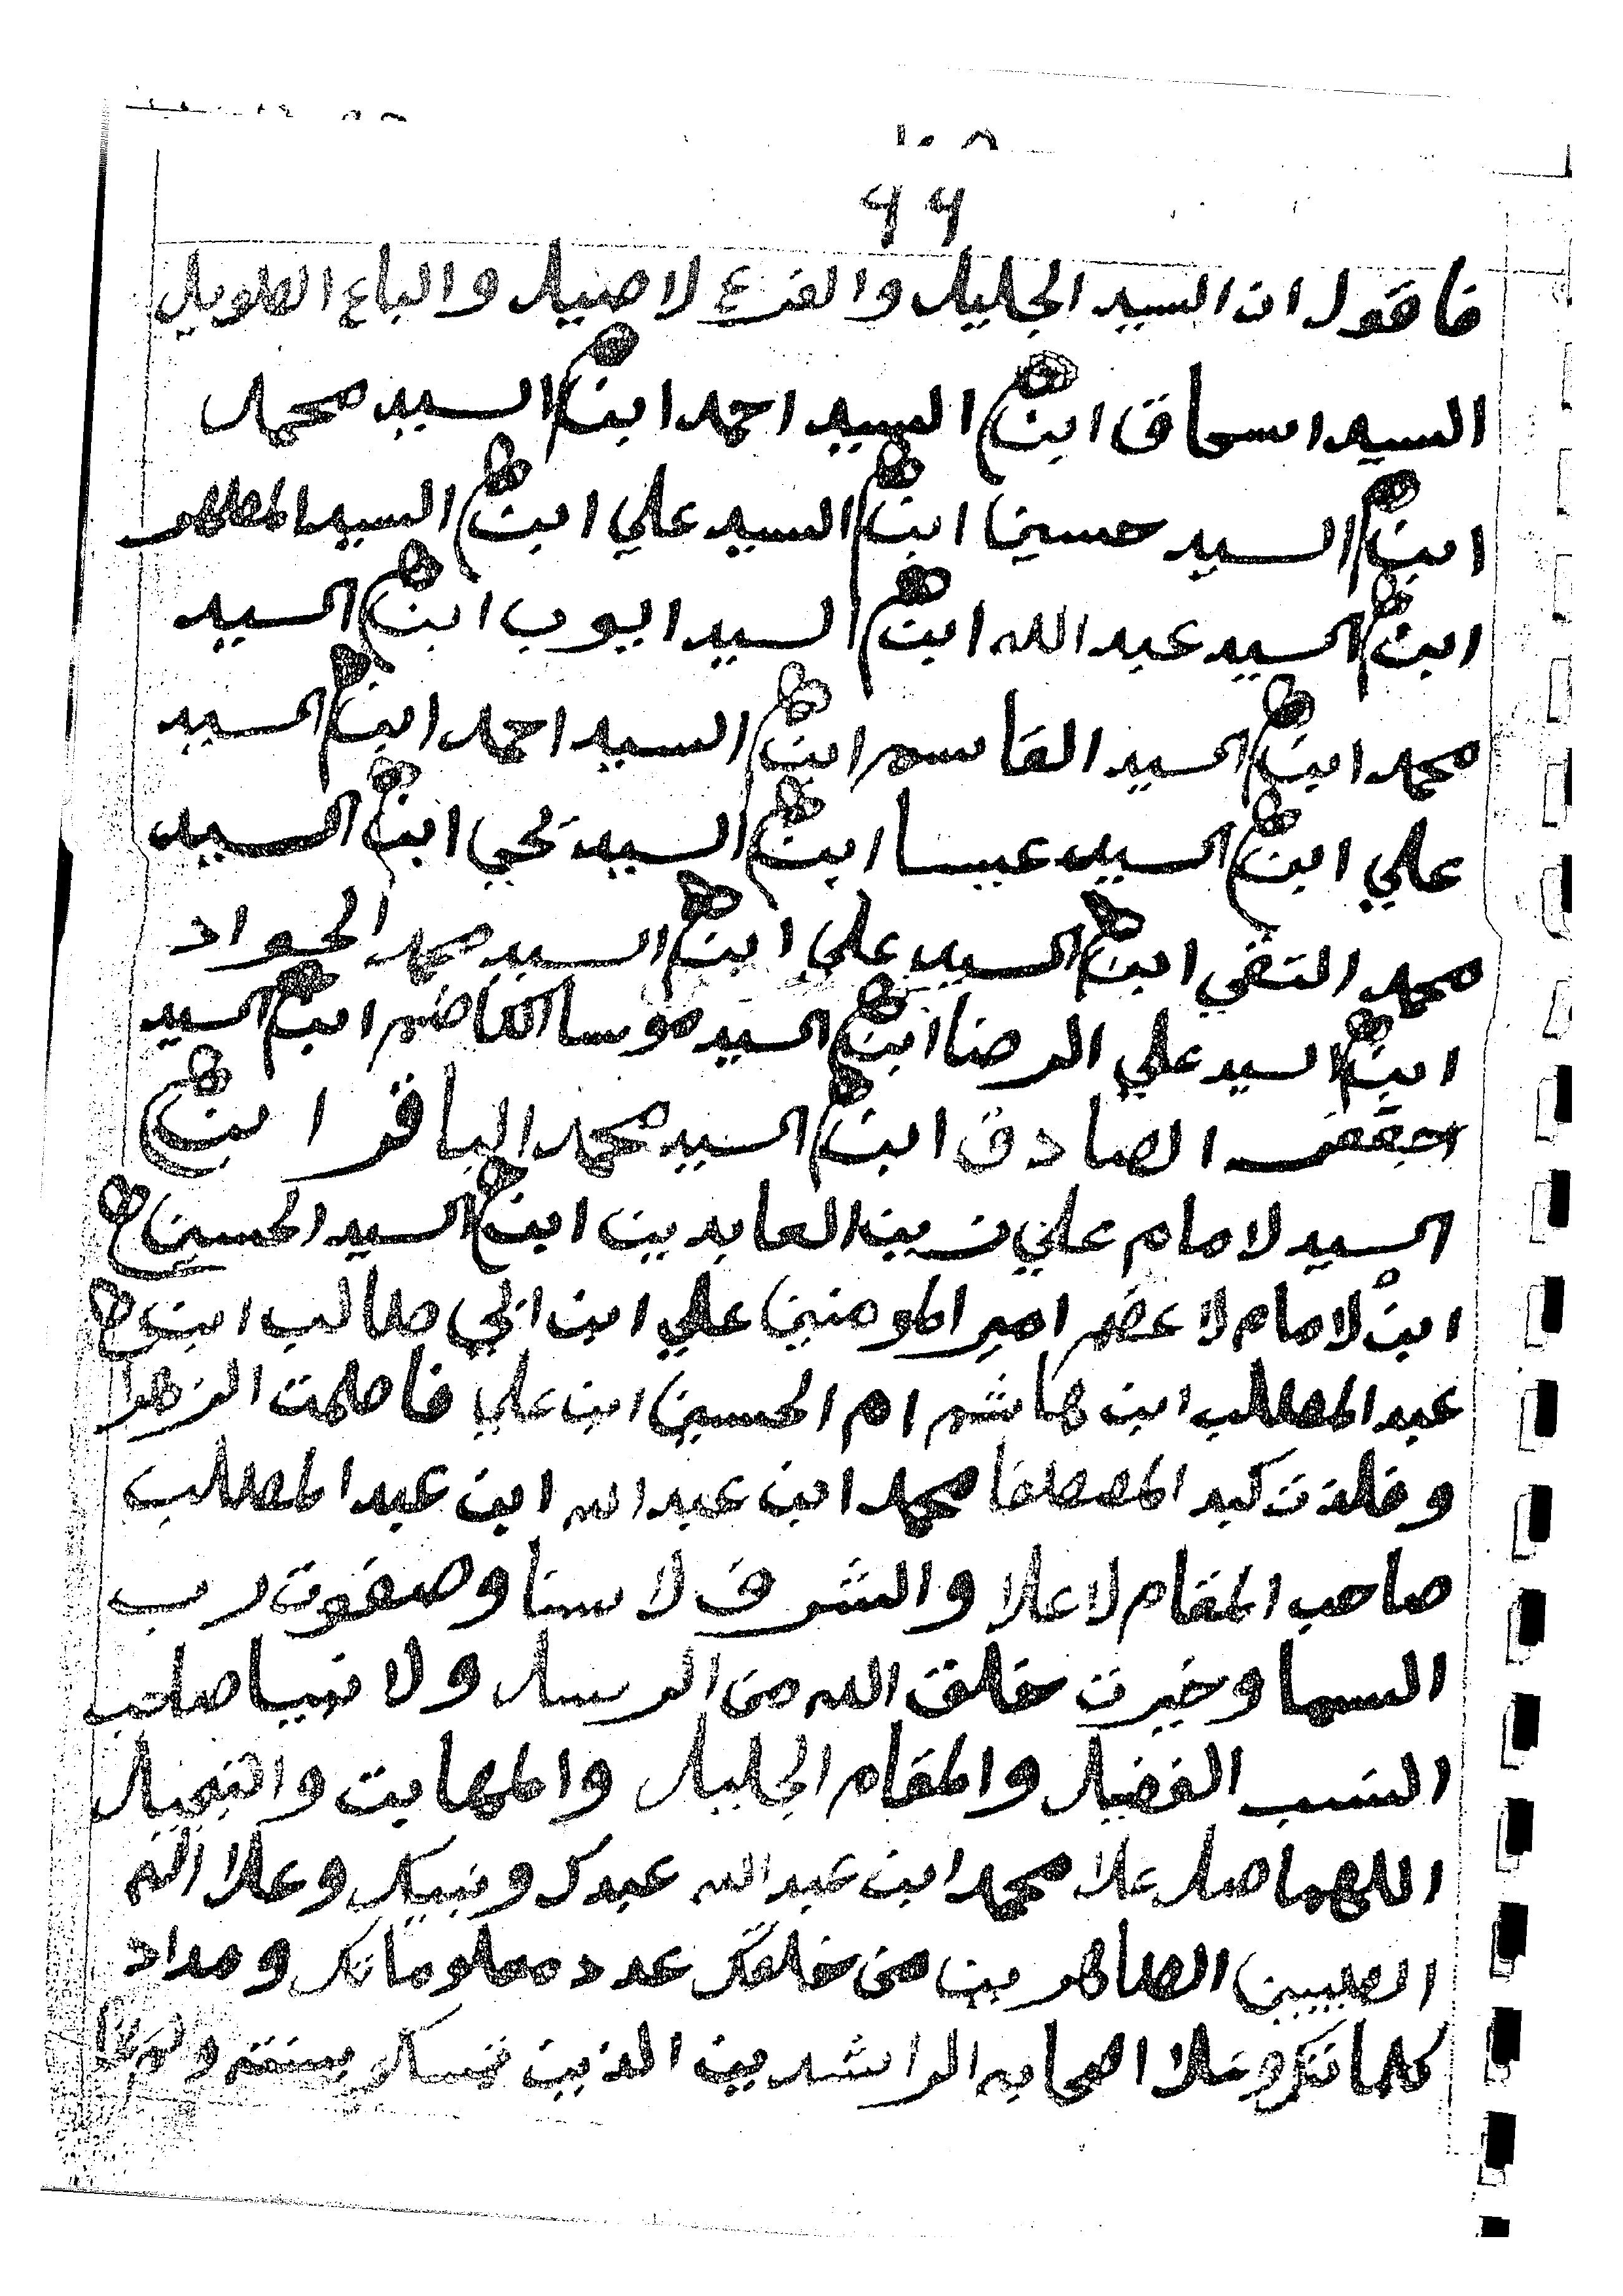 ١٠٨
٩٩
فاقول ان السيد الجليل والفرع لاصيل والباع الطويل
السيد اسحاق ابن السيد احمد ابن السيد محمد
ابن السيد حسين ابن السيد علي ابن السيد المطهر
ابن السيد عبد الله ابن السيد ايوب ابن السيد
محمد ابن السيد القاسم ابن السيد احمد ابن السيد
علي ابن السيد عيسا ابن السيد يحي ابن السيد
محمد التقي ابن السيد علي ابن السيد محمد الجواد
ابن السيد علي الرضا ابن السيد موسا الكاضم ابن السيد
جعفر الصادق ابن السيد محمد الباقر ابن
السيد لامام علي زين العابدين ابن السيد الحسين
ابن لامام لاعضم امير المومنين علي ابن ابي طالب ابن
عبد المطلب ابن هاشم ام الحسين ابن علي فاطمت الزهرا
وفلذت كبد المصطفا محمد ابن عبد الله ابن عبد المطلب
صاحب المقام لاعلا والشرف لاسنا وصفوت رب
السما وخيرت خلق الله من الرسل ولانبيا صاحب
النسب الفضيل والمقام الجليل والمهابت والتبجيل
اللهما صل علا محمد ابن عبد الله عبدك ونبيك وعلا اله
الطيبين الطاهرين من خلقك عدد معلوماتك ومداد
كلماتك وعلا اصحابه الراشدين الذين تمسكو بسنته